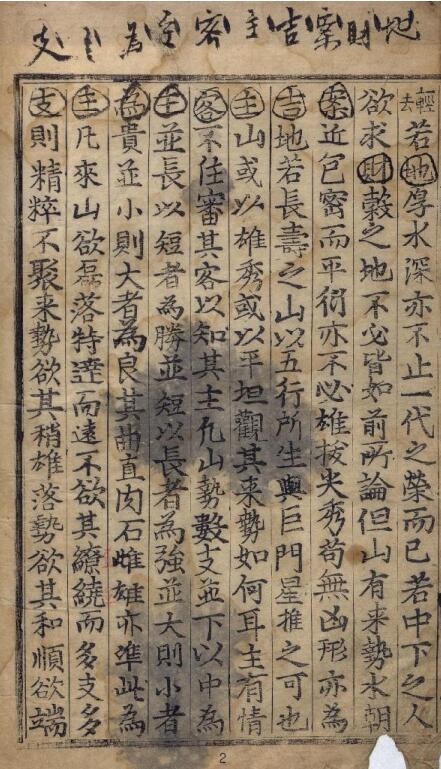 地 財 案 吉 主 容 至 為 主 支
輕去若地厚水深亦不止一代之榮而已若中下之人
欲求財穀之地不必皆如前所論但山有来勢水朝
案近包密而平衍亦不必雄拔尖秀苟無凶形亦為
吉地若長壽之山以五行所生與巨門星推之可也
主山或以雄秀或以平坦觀其来勢如何耳主有情
客不住審其客以知其主凡山勢數支並下以中為
主並長以短者為勝並短以長者為強並大則小者
為貴並小則大者為良其曲直肉石雌雄亦準此為
主凡來山欲磊落特達而遠不欲其繚繞而多支多
支則精粹不聚来勢欲其稍雄落勢欲其和順欲端
2